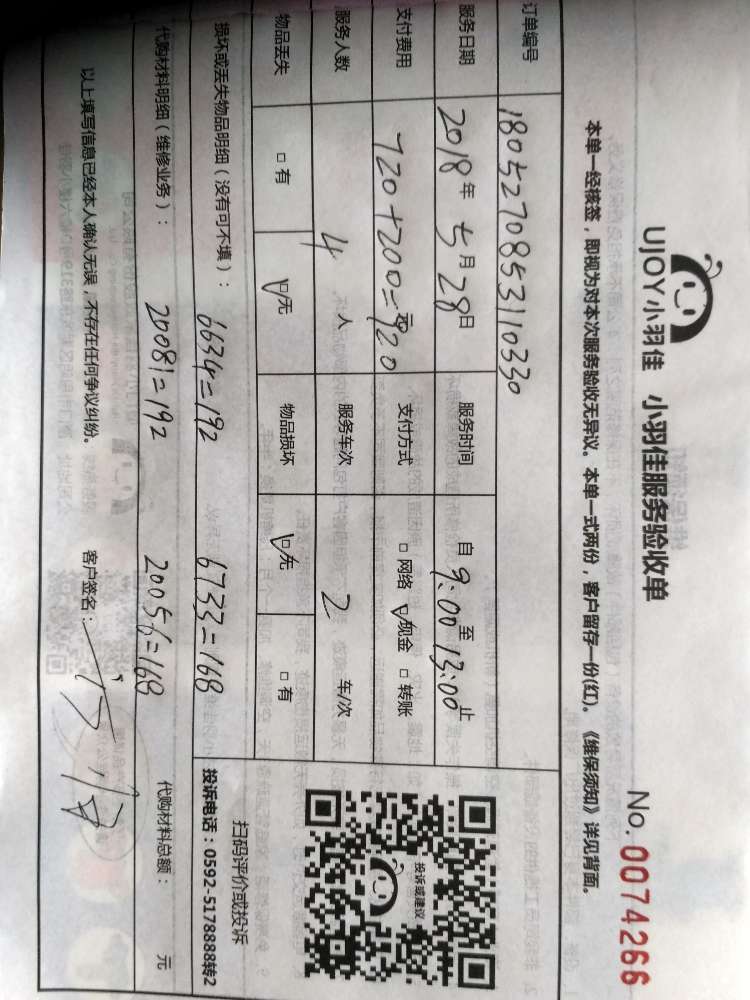 UJOY小羽佳 小羽佳服务验收单
No. 0074266
本单一经核签，即视为对本次服务验收无异议。本单一式两份，客户留存一份(红)。《维保须知》详见背面。
订单编号 180527085311033​0
服务日期 2018年5月28日 服务时间 自9:00至13:00止
支付费用 720+200=920元 支付方式 □网络 ☑现金 □转账
服务人数 4人 服务车次 2 车/次
物品丢失 □有 ☑无 物品损坏 ☑无 □有
损坏或丢失物品明细（没有可不填）： 6634=192 6733=168
代购材料明细（维修业务）： 20081=192 20056=168 代购材料总额： 元
以上填写信息已经本人确认无误，不存在任何争议纠纷。 客户签名：
投诉或建议
扫码评价或投诉
投诉电话：0592-5178888转2